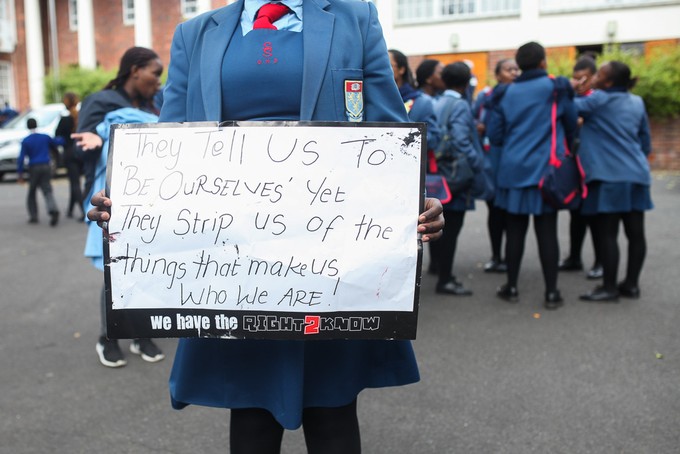 They Tell Us To:
'BE OURSELVES' Yet
They Strip us of the
things that make us
Who We ARE!
we have the RIGHT2KNOW